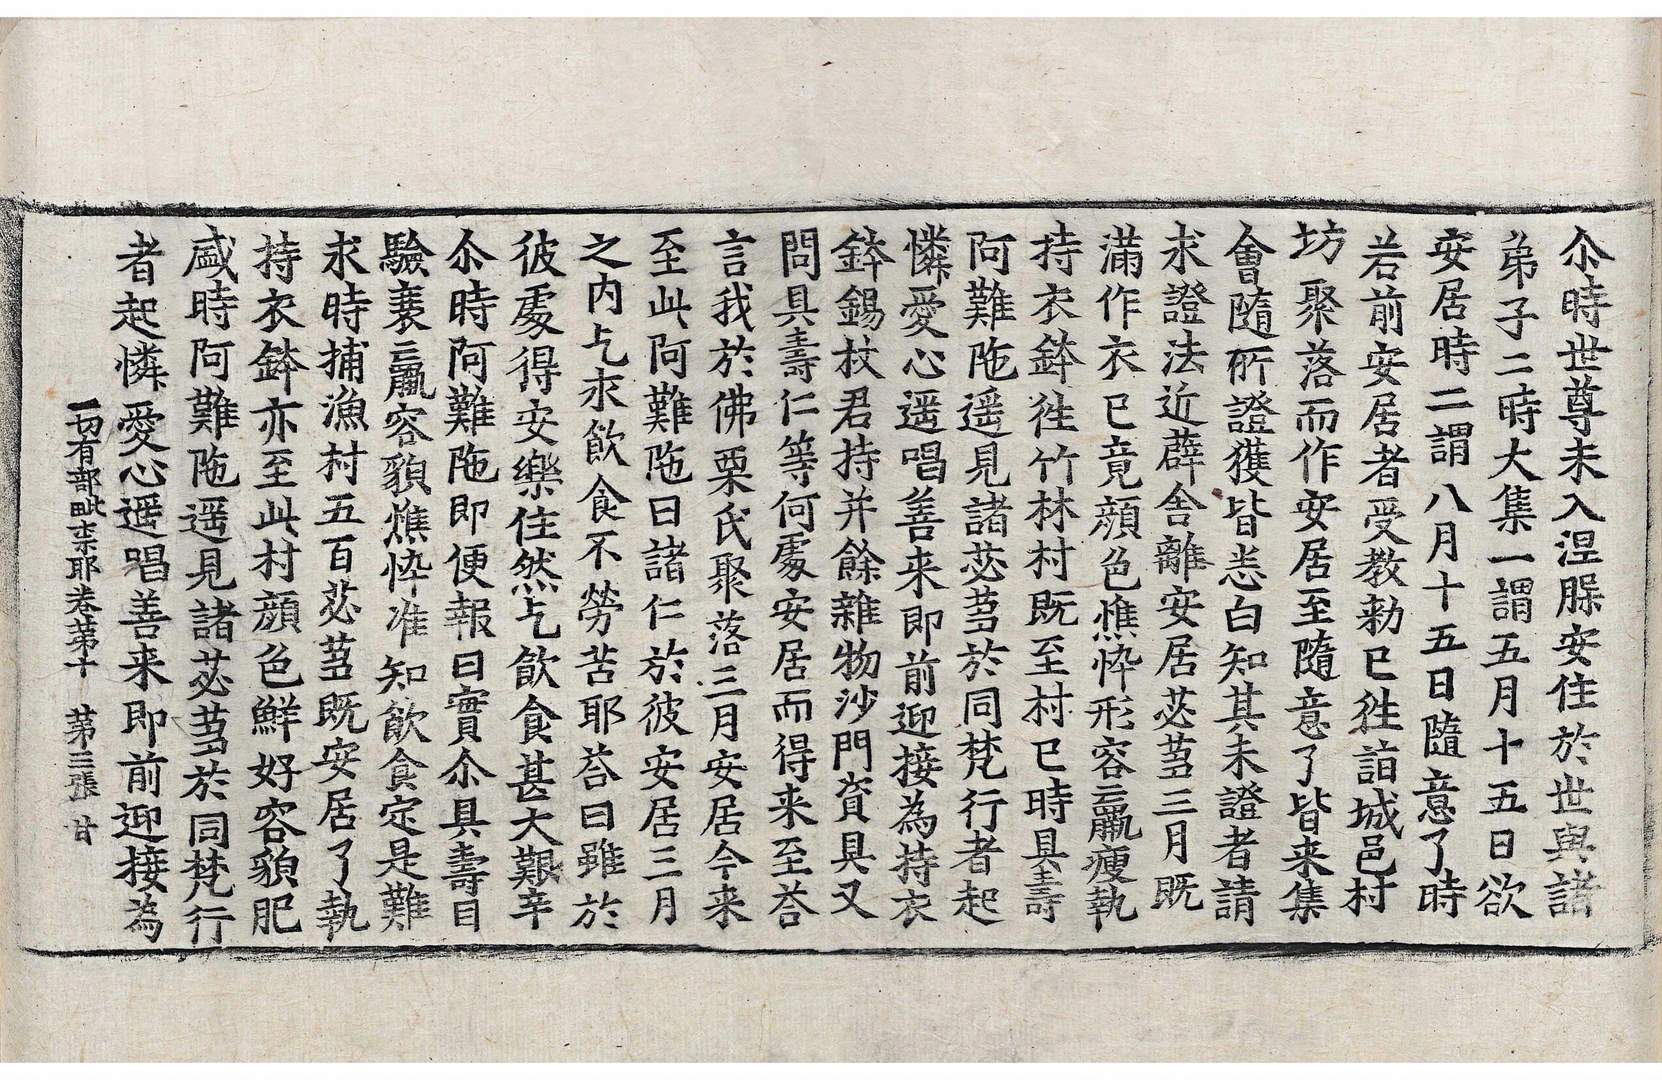 尒時世尊未入涅脲安住於世與諸
弟子二時大集一謂五月十五日欲
安居時二謂八月十五日隨意了時
若前安居者受教勅已徃詣城邑村
坊聚落而作安居至隨意了皆来集
會隨所證獲皆悉白知其未證者請
求證法近薜舍離安居苾芻三月既
滿作衣已竟顔色憔悴形容羸瘦執
持衣鉢徃竹林村既至村已時具壽
阿難陁遥見諸苾芻於同梵行者起
憐愛心遥唱善来即前迎接為持衣
鉢錫杖君持并餘雜物沙門資具又
問具壽仁等何處安居而得来至荅
言我於佛栗氏聚落三月安居今来
至此阿難陁曰諸仁於彼安居三月
之内乞求飲食不勞苦耶荅曰雖於
彼處得安樂住然乞飲食甚大艱辛
尒時阿難陁即便報曰實尒具壽目
驗衰羸容貌憔悴准知飲食定是難
求時捕漁村五百苾芻既安居了執
持衣鉢亦至此村顔色鮮好容貌肥
盛時阿難陁遥見諸苾芻於同梵行
者起憐愛心遥唱善来即前迎接為
一切有部毗柰耶卷第十 第三張 甘